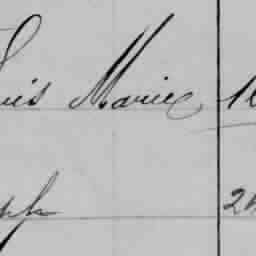 uis Marie 1
ph 2